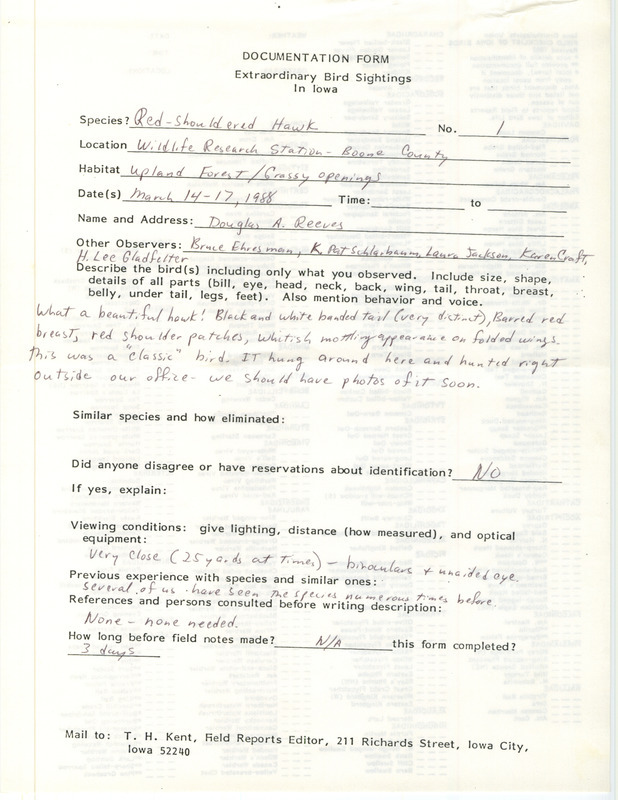 DOCUMENTATION FORM
Extraordinary Bird Sightings
In Iowa
Species? Red-shouldered Hawk No. 1
Location Wildlife Research Station - Boone County
Habitat Upland Forest / Grassy openings
Date(s) March 14-17, 1988 Time: to
Name and Address: Douglas A. Reeves
Other Observers: Bruce Ehresman, K. Pat Schlarbaum, Laura Jackson, Karen Croft,
H. Lee Gladfelter
Describe the bird(s) including only what you observed. Include size, shape,
details of all parts (bill, eye, head, neck, back, wing, tail, throat, breast,
belly, under tail, legs, feet). Also mention behavior and voice.
What a beautiful hawk! Black and white banded tail (very distinct), Barred red
breast, red shoulder patches, whitish mottling appearance on folded wings.
This was a "classic" bird. IT hung around here and hunted right
outside our office - we should have photos of it soon.
Similar species and how eliminated:
Did anyone disagree or have reservations about identification? NO
If yes, explain:
Viewing conditions: give lighting, distance (how measured), and optical
equipment:
Very close (25 yards at times) - binoculars + unaided eye.
Previous experience with species and similar ones:
Several of us have seen the species numerous times before.
References and persons consulted before writing description:
None - none needed.
How long before field notes made? N/A this form completed?
3 days
Mail to: T. H. Kent, Field Reports Editor, 211 Richards Street, Iowa City,
Iowa 52240